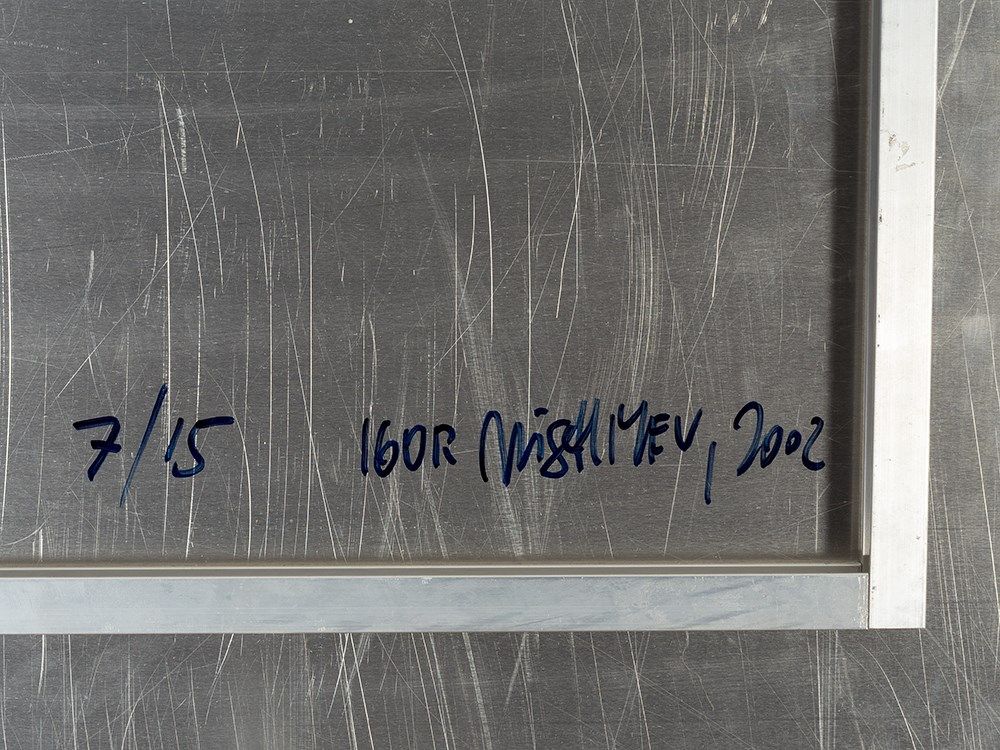 7/15 IGOR MISCHIYEV, 2002